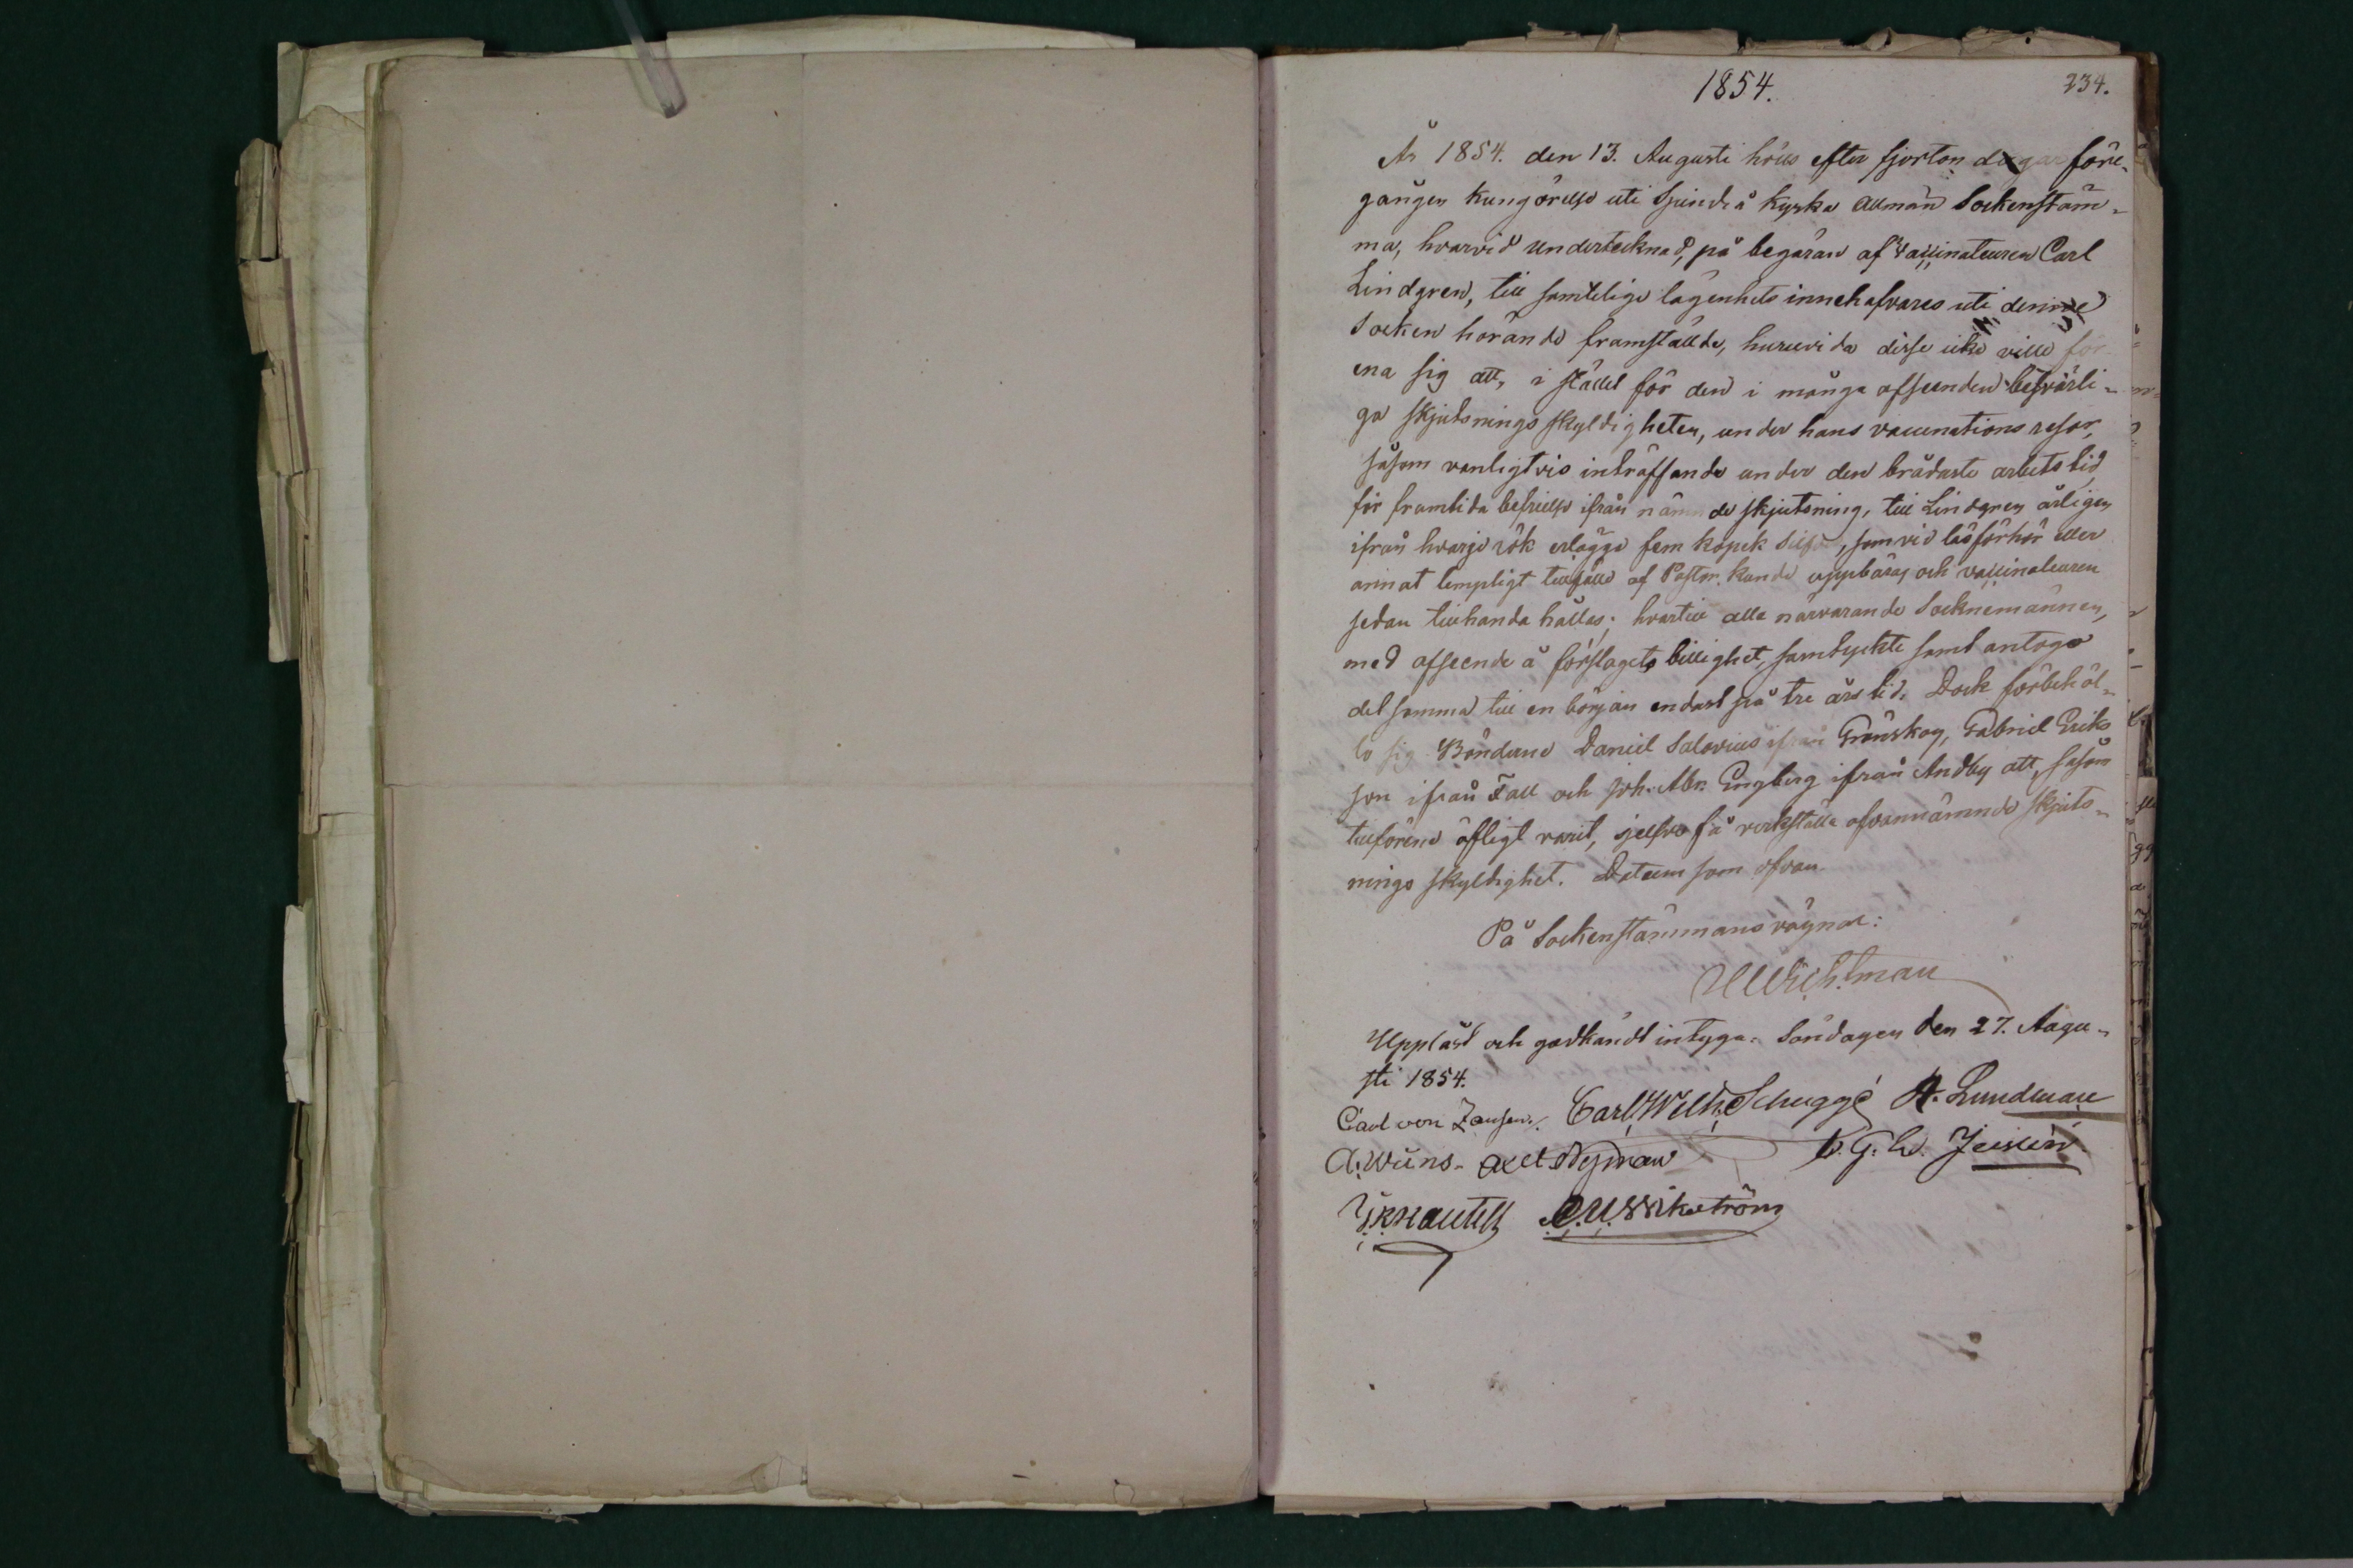 1854.
234.
År 1854. den 13. Augusti hölls efter fjorton dagar före-
gången kungörelse uti Sjundeå kyrka allmän Sockenstäm-
ma, hvarvid undertecknad, på begäran af Vaccinateuren Carl
Lindgren, till samtelige lägenhets innehafvares uti denne
Socken hörande framställde, huruvida desse icke ville för
ena sig att, i stället för den i många afseenden besvärli-
ga skjutsnings skyldigheten, under hans vaccinations resor,
såsom vanligtvis inträffande under den brådaste arbets tid
för framtida befrielse ifrån nämnde skjutsning, till Lindgren årligen
ifrån hvarje rök erlägga fem kopek Silfver, som vid läsförhör eller
annat lempligt tillfälle af Pastor kunde uppbäras och vaccinateuren
sedan tillhanda hållas; hvartill alla närvarande Socknemännen,
med afseende å förslagets billighet, samtyckte samt antogo
detsamma till en början endast på tre års tid. Dock förbehöl-
lo sig Bönderne Daniel Salovius ifrån Grönskog, Gabriel Eriks
son ifrån Fall och Joh. Abr. Engberg ifrån Andby att, såsom
tillförene öfligt varit, sjelfve få verkställa ofvannämnde skjuts-
nings skyldighet. Datum som ofvan
På Sockenstämmans vägnar:
Wichtman
Uppläst och godkändt intyga: Söndagen den 27. Augu-
sti 1854.
Carl von Jansen. Carl Wilh. Schuggé A. Lundman
A. Widns. Axel Nyman G. W.
C. U. Wikström